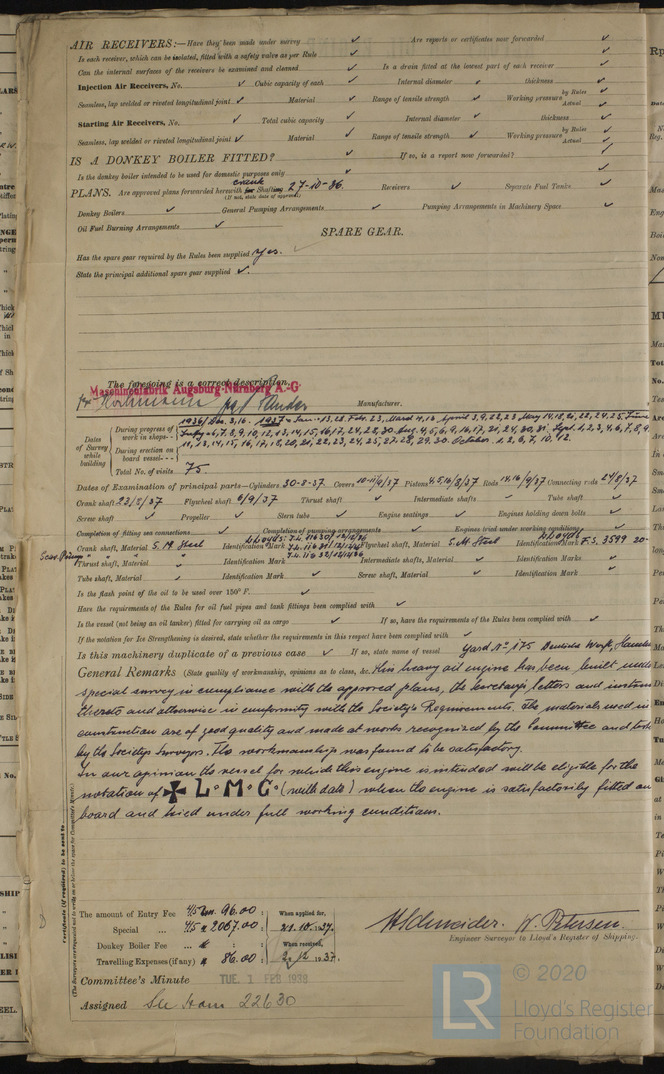 AIR RECEIVERS:—Have they been made under survey ✓ Are reports or certificates now forwarded ✓
Is each receiver, which can be isolated, fitted with a safety valve as per Rule ✓
Can the internal surfaces of the receivers be examined and cleaned ✓ Is a drain fitted at the lowest part of each receiver ✓
Injection Air Receivers, No. ✓ Cubic capacity of each ✓ Internal diameter ✓ thickness ✓
Seamless, lap welded or riveted longitudinal joint ✓ Material ✓ Range of tensile strength ✓ Working pressure by Rules Actual ✓
Starting Air Receivers, No. ✓ Total cubic capacity ✓ Internal diameter ✓ thickness ✓
Seamless, lap welded or riveted longitudinal joint ✓ Material ✓ Range of tensile strength ✓ Working pressure by Rules Actual ✓
IS A DONKEY BOILER FITTED? ✓ If so, is a report now forwarded? ✓
Is the donkey boiler intended to be used for domestic purposes only ✓
PLANS. Are approved plans forwarded herewith for crank Shafting 27-10-36. Receivers ✓ Separate Fuel Tanks ✓
(If not, state date of approval)
Donkey Boilers ✓ General Pumping Arrangements ✓ Pumping Arrangements in Machinery Space ✓
Oil Fuel Burning Arrangements ✓
SPARE GEAR.
Has the spare gear required by the Rules been supplied Yes.
State the principal additional spare gear supplied ✓.
The foregoing is a correct description,
Maschinenfabrik Augsburg-Nürnberg A.-G
Manufacturer.
Dates of Survey while building
During progress of work in shops-- 1936/Dec. 3, 16. 1937 Jan. 13, 28. Feb. 23, March 4, 16, April 3, 9, 22, 23 May 14, 18, 20, 22, 24, 25, June
July 6, 7, 8, 9, 10, 12, 13, 14, 15, 16, 17, 24, 28, 30 Aug. 4, 5, 6, 9, 16, 17, 21, 24, 30, 31, Sept. 1, 2, 3, 4, 6, 7, 8, 9
During erection on board vessel--- 11, 13, 14, 15, 16, 17, 18, 20, 21, 22, 23, 24, 25, 27, 28, 29, 30. October. 1, 2, 6, 7, 10, 12.
Total No. of visits 75.
Dates of Examination of principal parts—Cylinders 30-8-37 Covers 10-11/9/37 Pistons 4,5,16/8/37 Rods 14,16/9/37 Connecting rods 24/8/37
Crank shaft 23/8/37 Flywheel shaft 6/9/37 Thrust shaft ✓ Intermediate shafts ✓ Tube shaft ✓
Screw shaft ✓ Propeller ✓ Stern tube ✓ Engine seatings ✓ Engines holding down bolts ✓
Completion of fitting sea connections ✓ Completion of pumping arrangements ✓ Engines tried under working conditions ✓
Crank shaft, Material S. M Steel Identification Mark Lloyds Flywheel shaft, Material S. M. Steel Identification Mark Lloyds F.S. 3599 20-
Thrust shaft, Material " Identification Mark Intermediate shafts, Material ✓ Identification Marks ✓
Tube shaft, Material ✓ Identification Mark ✓ Screw shaft, Material ✓ Identification Mark ✓
Is the flash point of the oil to be used over 150° F. ✓
Have the requirements of the Rules for oil fuel pipes and tank fittings been complied with ✓
Is the vessel (not being an oil tanker) fitted for carrying oil as cargo ✓ If so, have the requirements of the Rules been complied with ✓
If the notation for Ice Strengthening is desired, state whether the requirements in this respect have been complied with ✓
Is this machinery duplicate of a previous case ✓ If so, state name of vessel Yard No. 175 Deutsche Werft,
General Remarks (State quality of workmanship, opinions as to class, &c. This heavy oil engine has been built under
special survey in compliance with the approved plans, the Secretary's letters and
thereto and otherwise in conformity with the Society's Requirements. The materials used in
construction are of good quality and made at works recognized by the Committee and
by the Society's Surveyors. The workmanship was found to be satisfactory.
In our opinion the vessel for which this engine is intended will be eligible for the
notation of ✠ L·M·C· (with date) when the engine is satisfactorily fitted on
board and tried under full working conditions.
Certificate (if required) to be sent to
(The Surveyors are requested not to write on or below the space for Committee's Minute.)
The amount of Entry Fee 96.00 : When applied for,
Special ... 2067.00 : 21.10.1937.
Donkey Boiler Fee ... : : When received,
Travelling Expenses (if any) 86.00 : 2/12 1937.
H Schneider. W. Petersen.
Engineer Surveyor to Lloyd's Register of Shipping.
Committee's Minute TUE. 1 FEB 1938
Assigned See Ham 22630
LR
© 2020
Lloyd's Register
Foundation